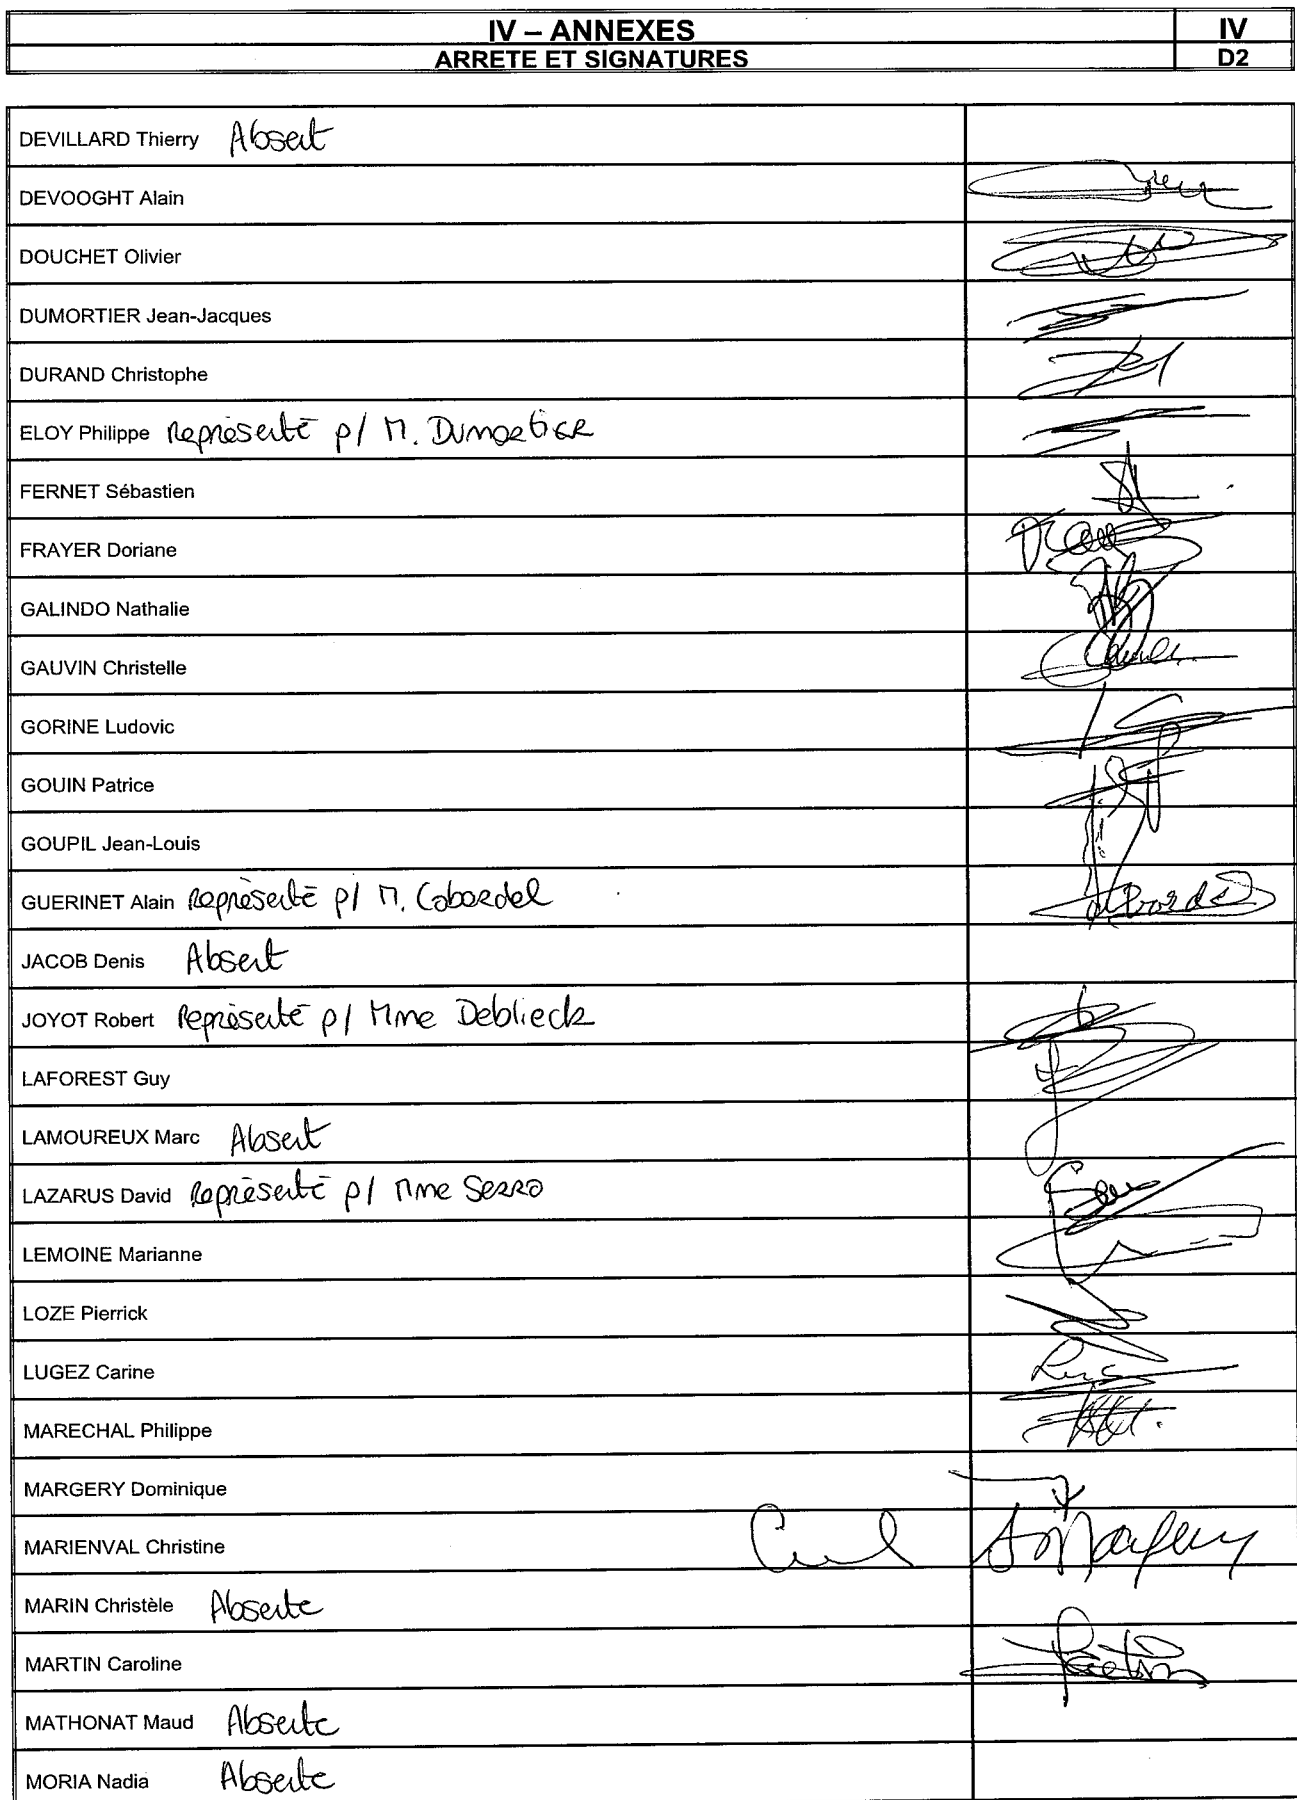 IV – ANNEXES IV
ARRETE ET SIGNATURES D2
DEVILLARD Thierry Absent
DEVOOGHT Alain
DOUCHET Olivier
DUMORTIER Jean-Jacques
DURAND Christophe
ELOY Philippe Représenté p/ M. Dumortier
FERNET Sébastien
FRAYER Doriane
GALINDO Nathalie
GAUVIN Christelle
GORINE Ludovic
GOUIN Patrice
GOUPIL Jean-Louis
GUERINET Alain Représenté p/ M. Cabordel
JACOB Denis Absent
JOYOT Robert Représenté p/ Mme Deblieck
LAFOREST Guy
LAMOUREUX Marc Absent
LAZARUS David Représenté p/ Mme Serro
LEMOINE Marianne
LOZE Pierrick
LUGEZ Carine
MARECHAL Philippe
MARGERY Dominique
MARIENVAL Christine
MARIN Christèle Absente
MARTIN Caroline
MATHONAT Maud Absente
MORIA Nadia Absente